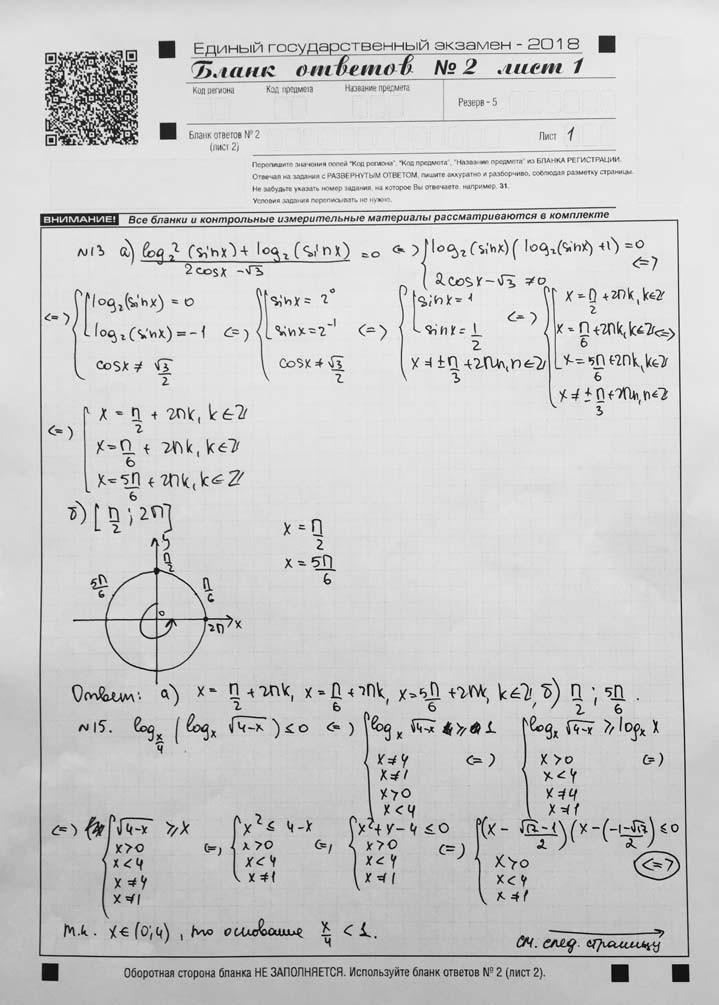 Единый государственный экзамен - 2018
Бланк ответов № 2 лист 1
Код региона Код предмета Название предмета
Резерв - 5
Бланк ответов № 2 (лист 2) Лист 1
Перепишите значения полей "Код региона", "Код предмета", "Название предмета" из БЛАНКА РЕГИСТРАЦИИ.
Отвечая на задания с РАЗВЕРНУТЫМ ОТВЕТОМ, пишите аккуратно и разборчиво, соблюдая разметку страницы.
Не забудьте указать номер задания, на которое Вы отвечаете, например, 31.
Условия задания переписывать не нужно.
ВНИМАНИЕ! Все бланки и контрольные измерительные материалы рассматриваются в комплекте
N13 а) (log₂²(sinx) + log₂(sinx))/(2cosx - √3) = 0 <=> { log₂(sinx)(log₂(sinx)+1) = 0
2cosx - √3 ≠ 0 <=>
<=> { [ log₂(sinx) = 0 <=> { [ sinx = 2⁰ <=> { [ sinx = 1 <=> { [ x = π/2 + 2πk, k∈Z
log₂(sinx) = -1 sinx = 2⁻¹ sinx = 1/2 x = π/6 + 2πk, k∈Z <=>
cosx ≠ √3/2 cosx ≠ √3/2 x ≠ ±π/3 + 2πn, n∈Z x = 5π/6 + 2πk, k∈Z
x ≠ ±π/3 + 2πn, n∈Z
<=> [ x = π/2 + 2πk, k∈Z
x = π/6 + 2πk, k∈Z
x = 5π/6 + 2πk, k∈Z
б) [π/2; 2π]
x = π/2
x = 5π/6
y
π/2
5π/6 π/6
0
x
2π
Ответ: а) x = π/2 + 2πk, x = π/6 + 2πk, x = 5π/6 + 2πk, k∈Z, б) π/2; 5π/6.
N15. log_{x/4}(log_x √(4-x)) ≤ 0 <=> { log_x √(4-x) ≥ 1 { log_x √(4-x) ≥ log_x x
x ≠ 4 <=> x > 0 <=>
x ≠ 1 x < 4
x > 0 x ≠ 4
x < 4 x ≠ 1
<=> { √(4-x) ≥ x <=> { x² ≤ 4-x <=> { x² + x - 4 ≤ 0 <=> { (x - (√17-1)/2)(x - (-1-√17)/2) ≤ 0
x > 0 x > 0 x > 0 x > 0 <=>
x < 4 x < 4 x < 4 x < 4
x ≠ 4 x ≠ 1 x ≠ 1 x ≠ 1
x ≠ 1
т.к. x∈(0;4), то основание x/4 < 1.
см. след. страницу
Оборотная сторона бланка НЕ ЗАПОЛНЯЕТСЯ. Используйте бланк ответов № 2 (лист 2).